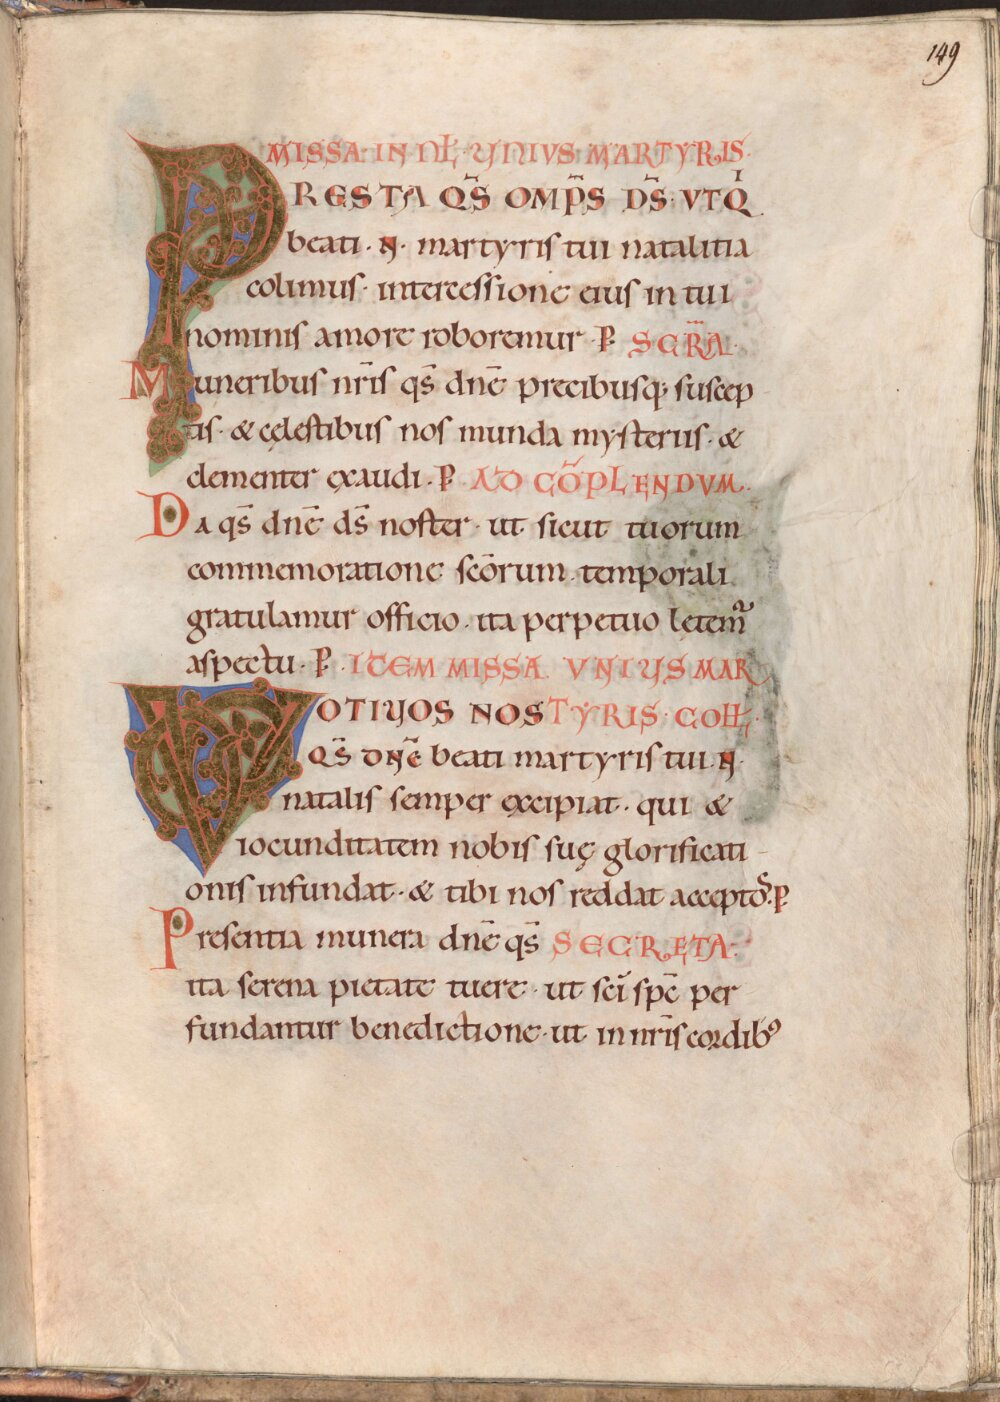 149
MISSA·IN Nƚ·VNIVS·MARTYRIS·
PRESTA Q̄S OMP̄S D̄S: VTQⁱ
beati·N· martyris tui natalitia
colimus· intercessione eius in tui
nominis amore roboremur·P̵ SECR̄A·
Muneribus nr̄is qs̄ dnē precibusq; suscep
tis·& cęlestibus nos munda mysteriis·&
clementer exaudi·P̵ AD CŌPLENDVM·
Da qs̄ dnē ds̄ noster· ut sicut tuorum
commemoratione sc̄orum temporali
gratulamur officio· ita perpetuo lętem̄
aspectu·P̵·ITEM MISSA VNIVS MAR
VOTIVOS NOSTYRIS·COLL̵·
Q̄S DN̄E beati martyris tui·N·
natalis semper excipiat· qui &
iocunditatem nobis suę glorificati
onis infundat·& tibi nos reddat acceptos·P̵
Presentia munera dnē qs̄ SECRETA·
ita serena pietate tuere· ut sc̄i sp̄c per
fundantur benedictione·ut in nr̄is cordibꝰ